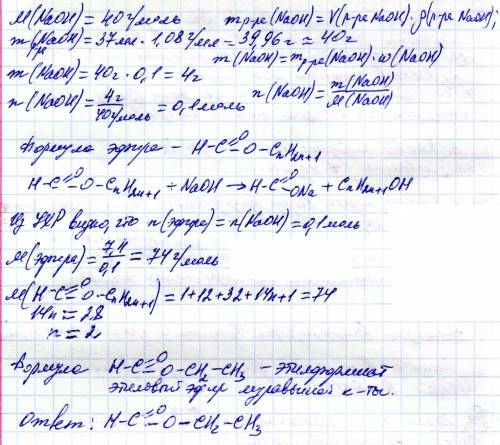 M(NaOH) = 40 г/моль m р-ра (NaOH) = V(р-ра NaOH) · ρ(р-ра NaOH);
m р-ра (NaOH) = 37мл · 1,08 г/мл = 39,96 г ≈ 40г
m(NaOH) = m р-ра (NaOH) · ω(NaOH)
m(NaOH) = 40г · 0,1 = 4г
n(NaOH) = 4г / 40г/моль = 0,1 моль n(NaOH) = m(NaOH) / M(NaOH)
Формула эфира – H-C(=O)-O-CnH2n+1
H-C(=O)-O-CnH2n+1 + NaOH → H-C(=O)ONa + CnH2n+1OH
Из УХР видно, что n(эфира) = n(NaOH) = 0,1 моль
M(эфира) = 7,4 / 0,1 = 74 г/моль
M(H-C(=O)-O-CnH2n+1) = 1+12+32+14n+1 = 74
14n = 28
n = 2
Формула H-C(=O)-O-CH2-CH3 – этилформиат
этиловый эфир муравьиной к-ты.
Ответ: H-C(=O)-O-CH2-CH3